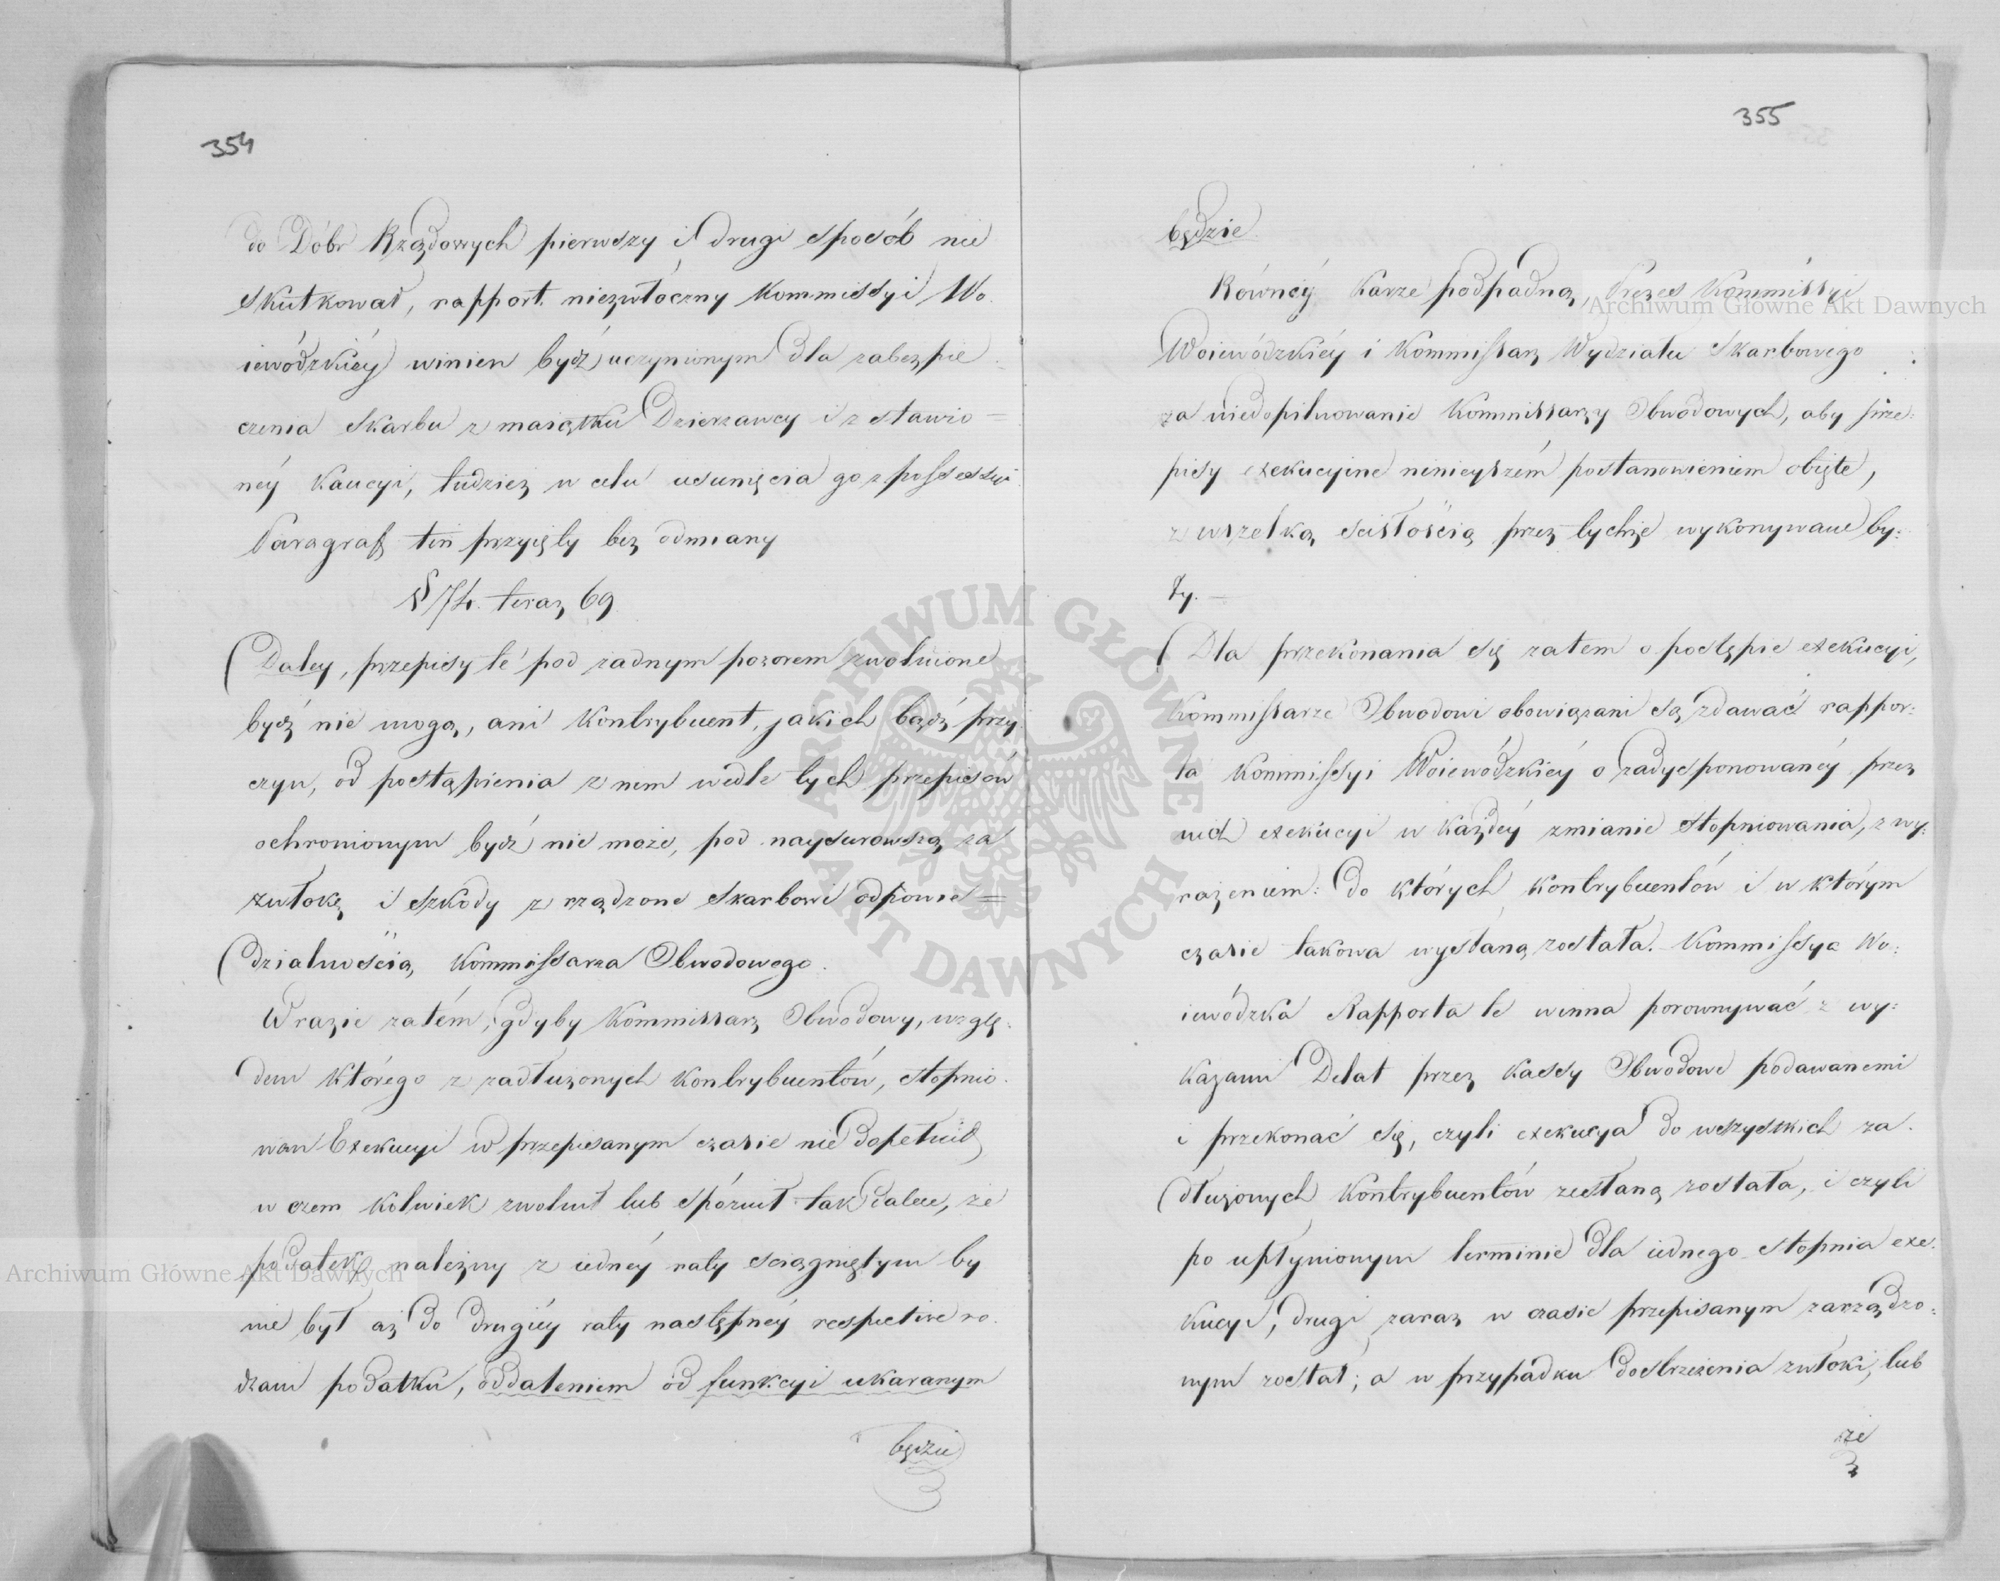 354
do Dóbr Rządowych pierwszy i drugi sposób nie
skutkował, rapport niezwłoczny Kommissyi Wo
iewódzkiéy winien bydź uczynionym dla zabezpie
czenia Skarbu z maiątku Dzierzawcy i z stawio=
néy Kaucyi, tudzież w celu usunięcia go z possessyi
Paragraf ten przyięty bez odmiany
§ 74. teraz 69
Daley, przepisy te pod żadnym pozorem zwolnione
bydź nie mogą, ani Kontrybuent, jakich bądź przy
czyn, od postąpienia z nim wedle tych przepisów
ochronionym bydź nie może, pod naysurowszą za
zwłokę i szkody zrządzone Skarbowi odpowie=
dzialnością Kommissarza Obwodowego.
W razie zatém, gdyby Kommissarz Obwodowy, wzglę.
dem którego z zadłużonych Kontrybuentów, stopnio.
wań Exekucyi w przepisanym czasie nie dopełnił,
w czem kolwiek zwolnił lub spóźnił tak dalece, że
podatek należny z iednéy raty sciągniętym by
nie był aż do drugiéy raty następnéy respective ro.
dzaiu podatku, oddaleniem od funkcyi ukaranym
będzie
355
będzie
Równéy karze podpadną, Prezes Kommissyi
Woiewódzkiéy i Kommissarz Wydziału Skarbowego
za niedopilnowanie Kommissarzy Obwodowych, aby prze:
pisy exekucyine ninieyszém postanowieniem obięte,
z wszelką scisłością przez tychże wykonywane by:
ły. —
Dla przekonania się zatem o postępie exekucyi,
Kommissarze Obwodowi obowiązani są zdawać rappor:
ta Kommissyi Woiewódzkiéy o zadysponowanéy przez
nich exekucyi w każdéy zmianie stopniowania, z wy:
rażeniem: do których Kontrybuentów i w którym
czasie takowa wysłaną została. Kommissya Wo:
iewódzka Rapporta te winna porownywać z wy:
kazami Delat przez Kassy Obwodowe podawanemi
i przekonać się, czyli exekucya do wszystkich za.
dłużonych Kontrybuentów zesłaną została, i czyli
po upłynionym terminie dla iednego stopnia exe.
kucyi, drugi zaraz w czasie przepisanym zarządzo:
nym został; a w przypadku dostrzeżenia zwłoki, lub
że
Archiwum Główne Akt Dawnych
Archiwum Główne Akt Dawnych
ARCHIWUM GŁÓWNE AKT DAWNYCH